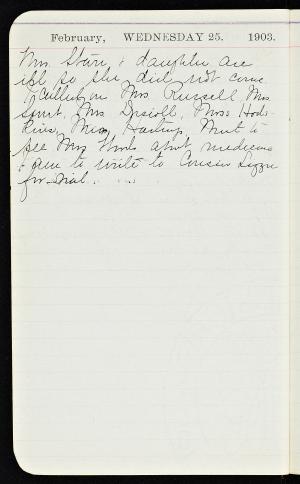 February, WEDNESDAY 25. 1903.
Mrs. Starr & daughter are
ill so she did not come
I called on Mrs Russell, Mrs
Mrs Driscoll, Miss
Miss Hastings, Went to
see Mrs about medicine
& am to write to Cousin Lizzie
for